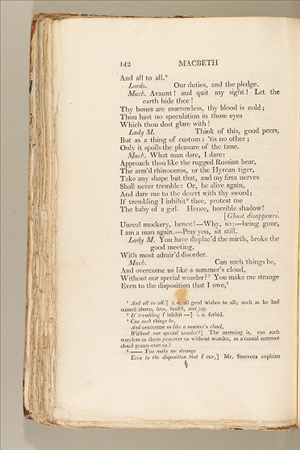 142 MACBETH
And all to all.⁶
Lords. Our duties, and the pledge.
Macb. Avaunt! and quit my sight! Let the
earth hide thee!
Thy bones are marrowless, thy blood is cold;
Thou hast no speculation in those eyes
Which thou dost glare with!
Lady M. Think of this, good peers,
But as a thing of custom: 'tis no other;
Only it spoils the pleasure of the time.
Macb. What man dare, I dare:
Approach thou like the rugged Russian bear,
The arm'd rhinoceros, or the Hyrcan tiger,
Take any shape but that, and my firm nerves
Shall never tremble: Or, be alive again,
And dare me to the desert with thy sword;
If trembling I inhibit⁷ thee, protest me
The baby of a girl. Hence, horrible shadow!
[Ghost disappears.
Unreal mockery, hence!—Why, so;—being gone,
I am a man again.—Pray you, sit still.
Lady M. You have displac'd the mirth, broke the
good meeting,
With most admir'd disorder.
Macb. Can such things be,
And overcome us like a summer's cloud,
Without our special wonder?⁸ You make me strange
Even to the disposition that I owe,⁹
⁶ And all to all.] i. e. all good wishes to all; such as he had
named above, love, health, and joy.
⁷ If trembling I inhibit—] i. e. forbid.
⁸ Can such things be,
And overcome us like a summer's cloud,
Without our special wonder?] The meaning is, can such
wonders as these pass over us without wonder, as a casual summer
cloud passes over us?
⁹ —— You make me strange
Even to the disposition that I owe,] Mr. Steevens explains